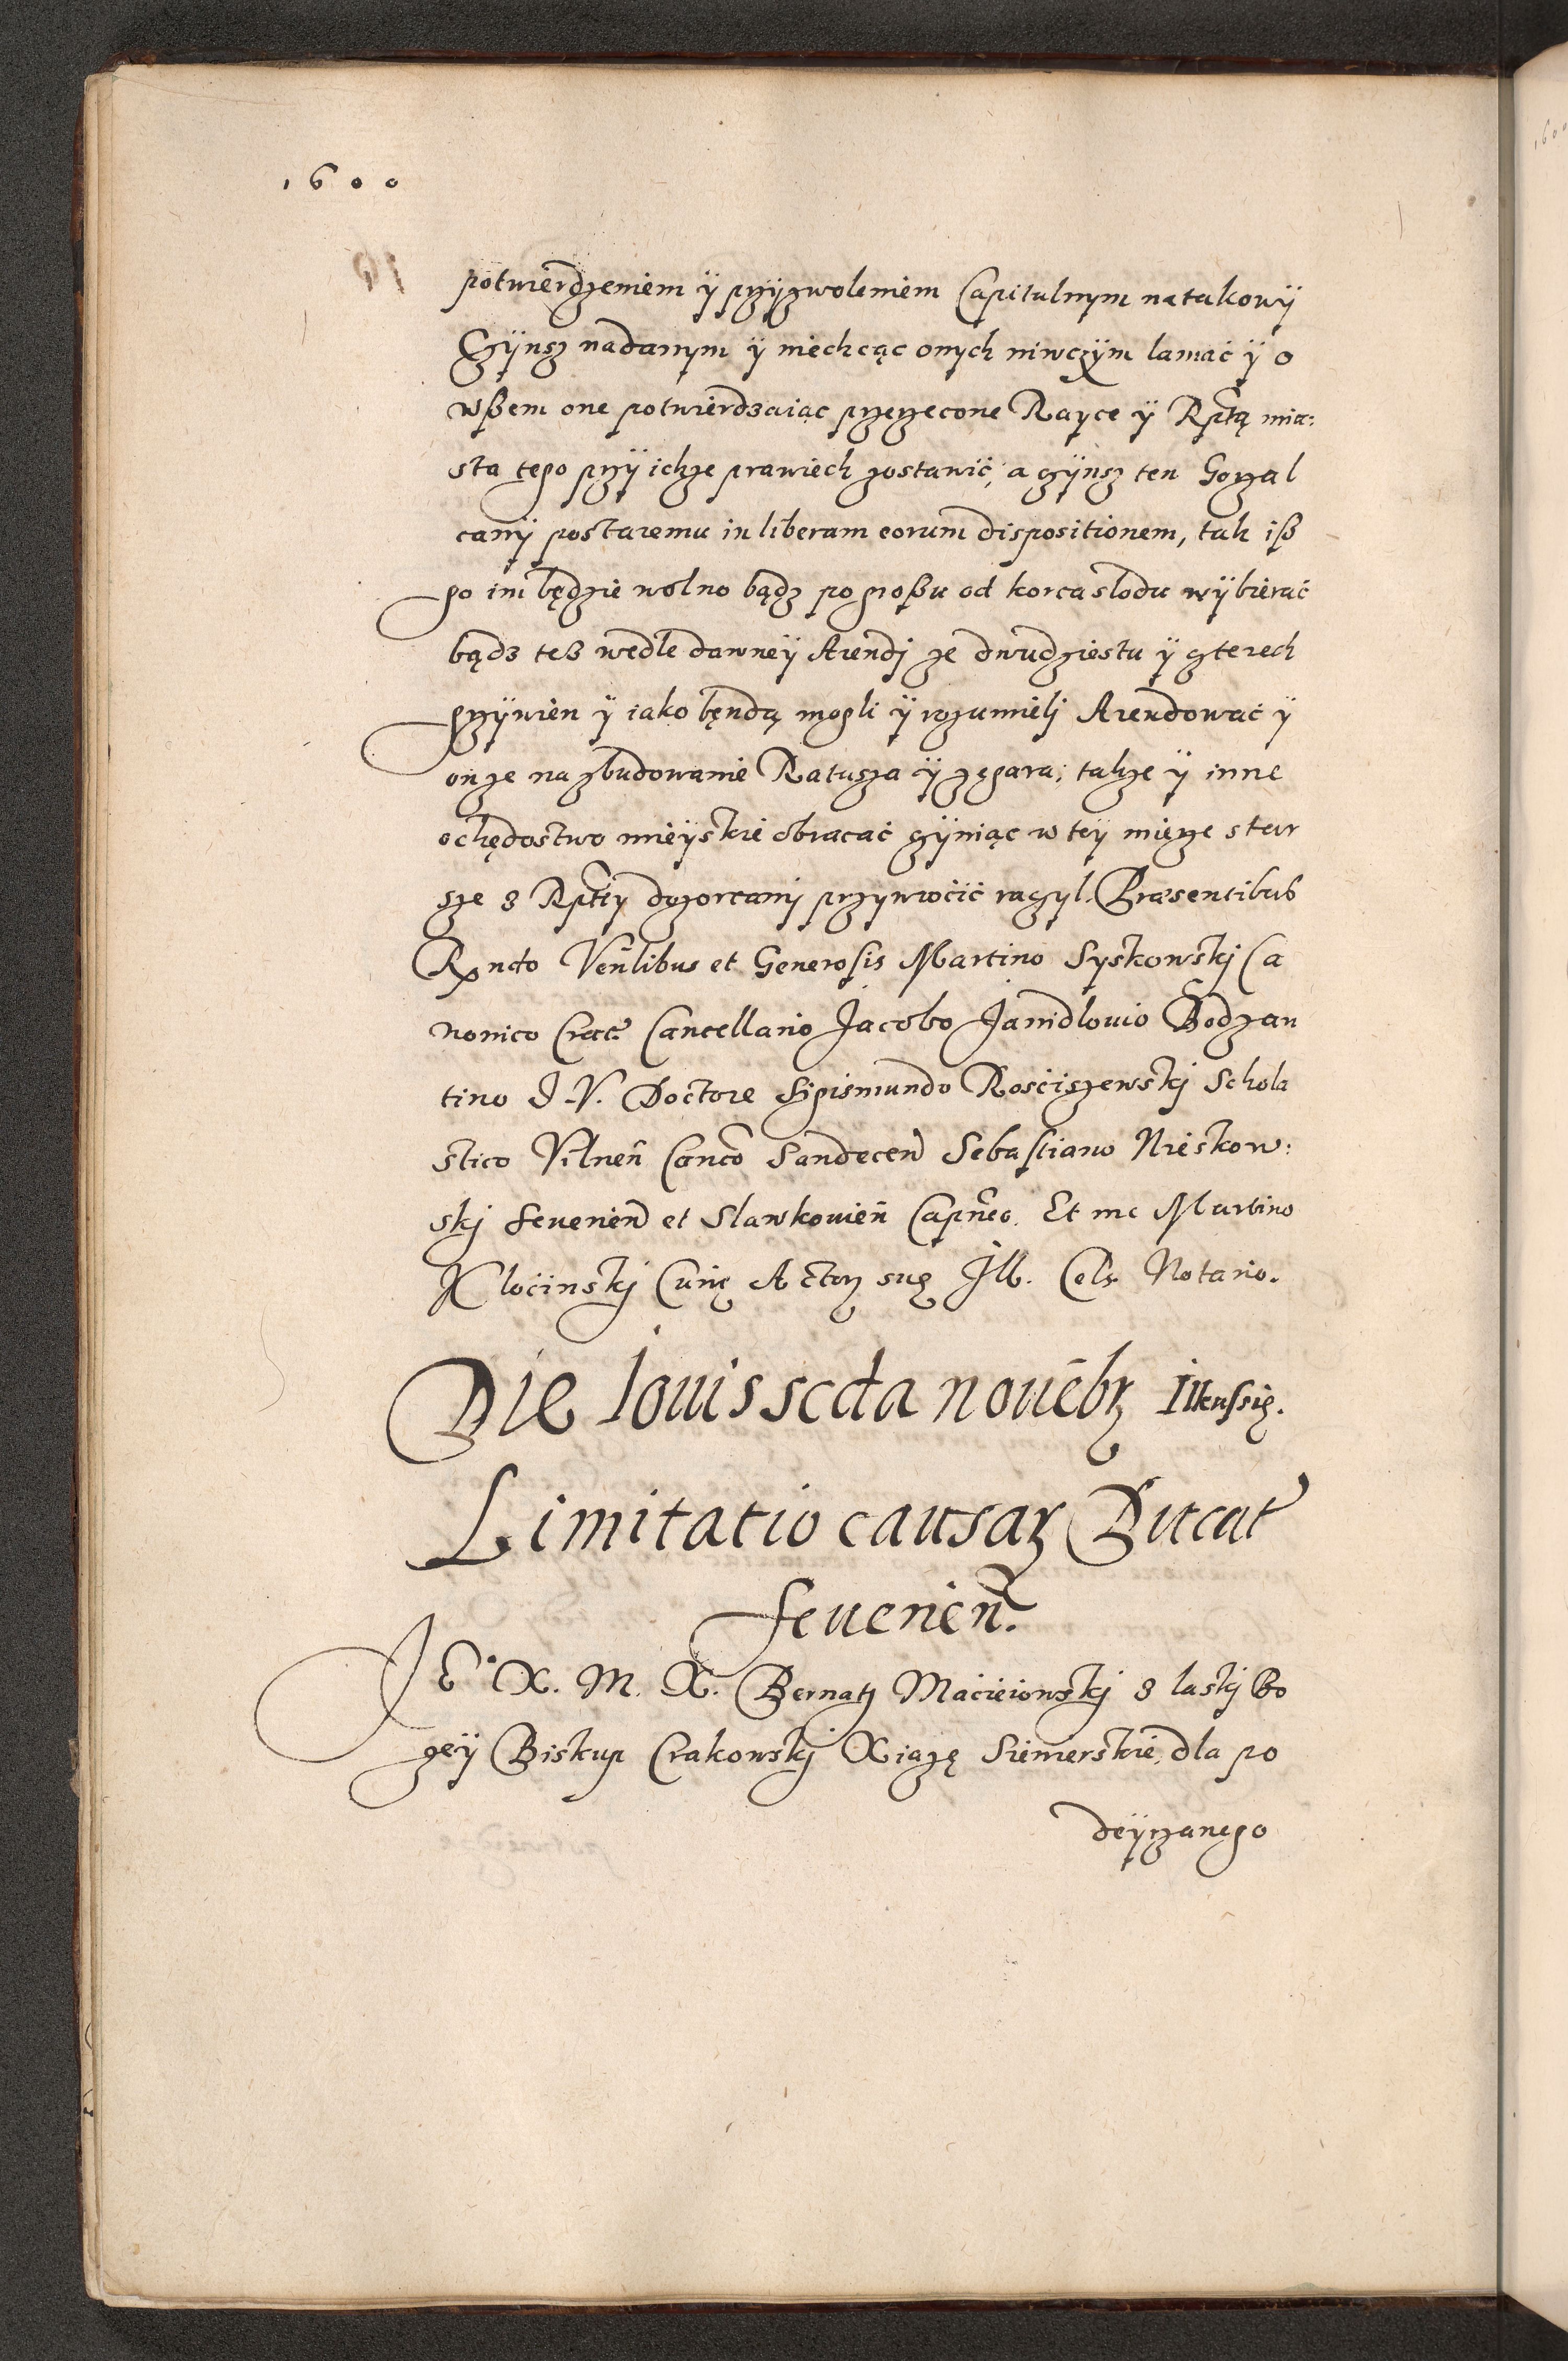 1600
potwierdzeniem ÿ przÿzwoleniem Capitulnym na takowÿ
Czÿnsz nadanym ÿ niechcąc onych niwczÿm lamać ÿ o
wßem one potwierdzaiąc przerzecone Rayce ÿ Rptą mia:
sta tego przÿ ichże prawiech zostawić, a czÿnsz ten Gorzal
canÿ postaremu in liberam eorum dispositionem, tak iß
go im będzie wolno bądz po großu od korca slodu wÿbierać
bądz teß wedle dawneÿ Arendj ze dwudziestu ÿ czterech
grzÿwien ÿ iako będą mogli ÿ rozumielj Arendować ÿ
onże na zbudowanie Ratusza ÿ zegara, takze ÿ inne
ochędostwo mieÿskie obracać czÿniąc w teÿ mierze star
sze z Rptÿ dozorcamj przywrócić raczyl. Præsentibus
Rndo Venlibus et Generosis Martino Syskowskj Ca
nonico Crac. Cancellario Jacobo Janidlouio Bodzan
tino J. V. Doctore Sigismundo Rościszewskj Schola
stico Vilnen̄ Canco Sandecen Sebastiano Nieskow:
skj Seuerien et Slawkouien̄ Capneo. Et me Martino
Klocinskj Curię Actorȝ suę Ill. Cels. Notario.
Die Iouis scda nouēbrȝ Ilkussię.
Limitatio causarȝ Ducat
Seuerien̄.
Je° X. M. X. Bernatȝ Macieiowskj z laskj Bo
żeÿ Biskup Crakowskj Xiążę Siewerskie, dla po
deÿrzanego